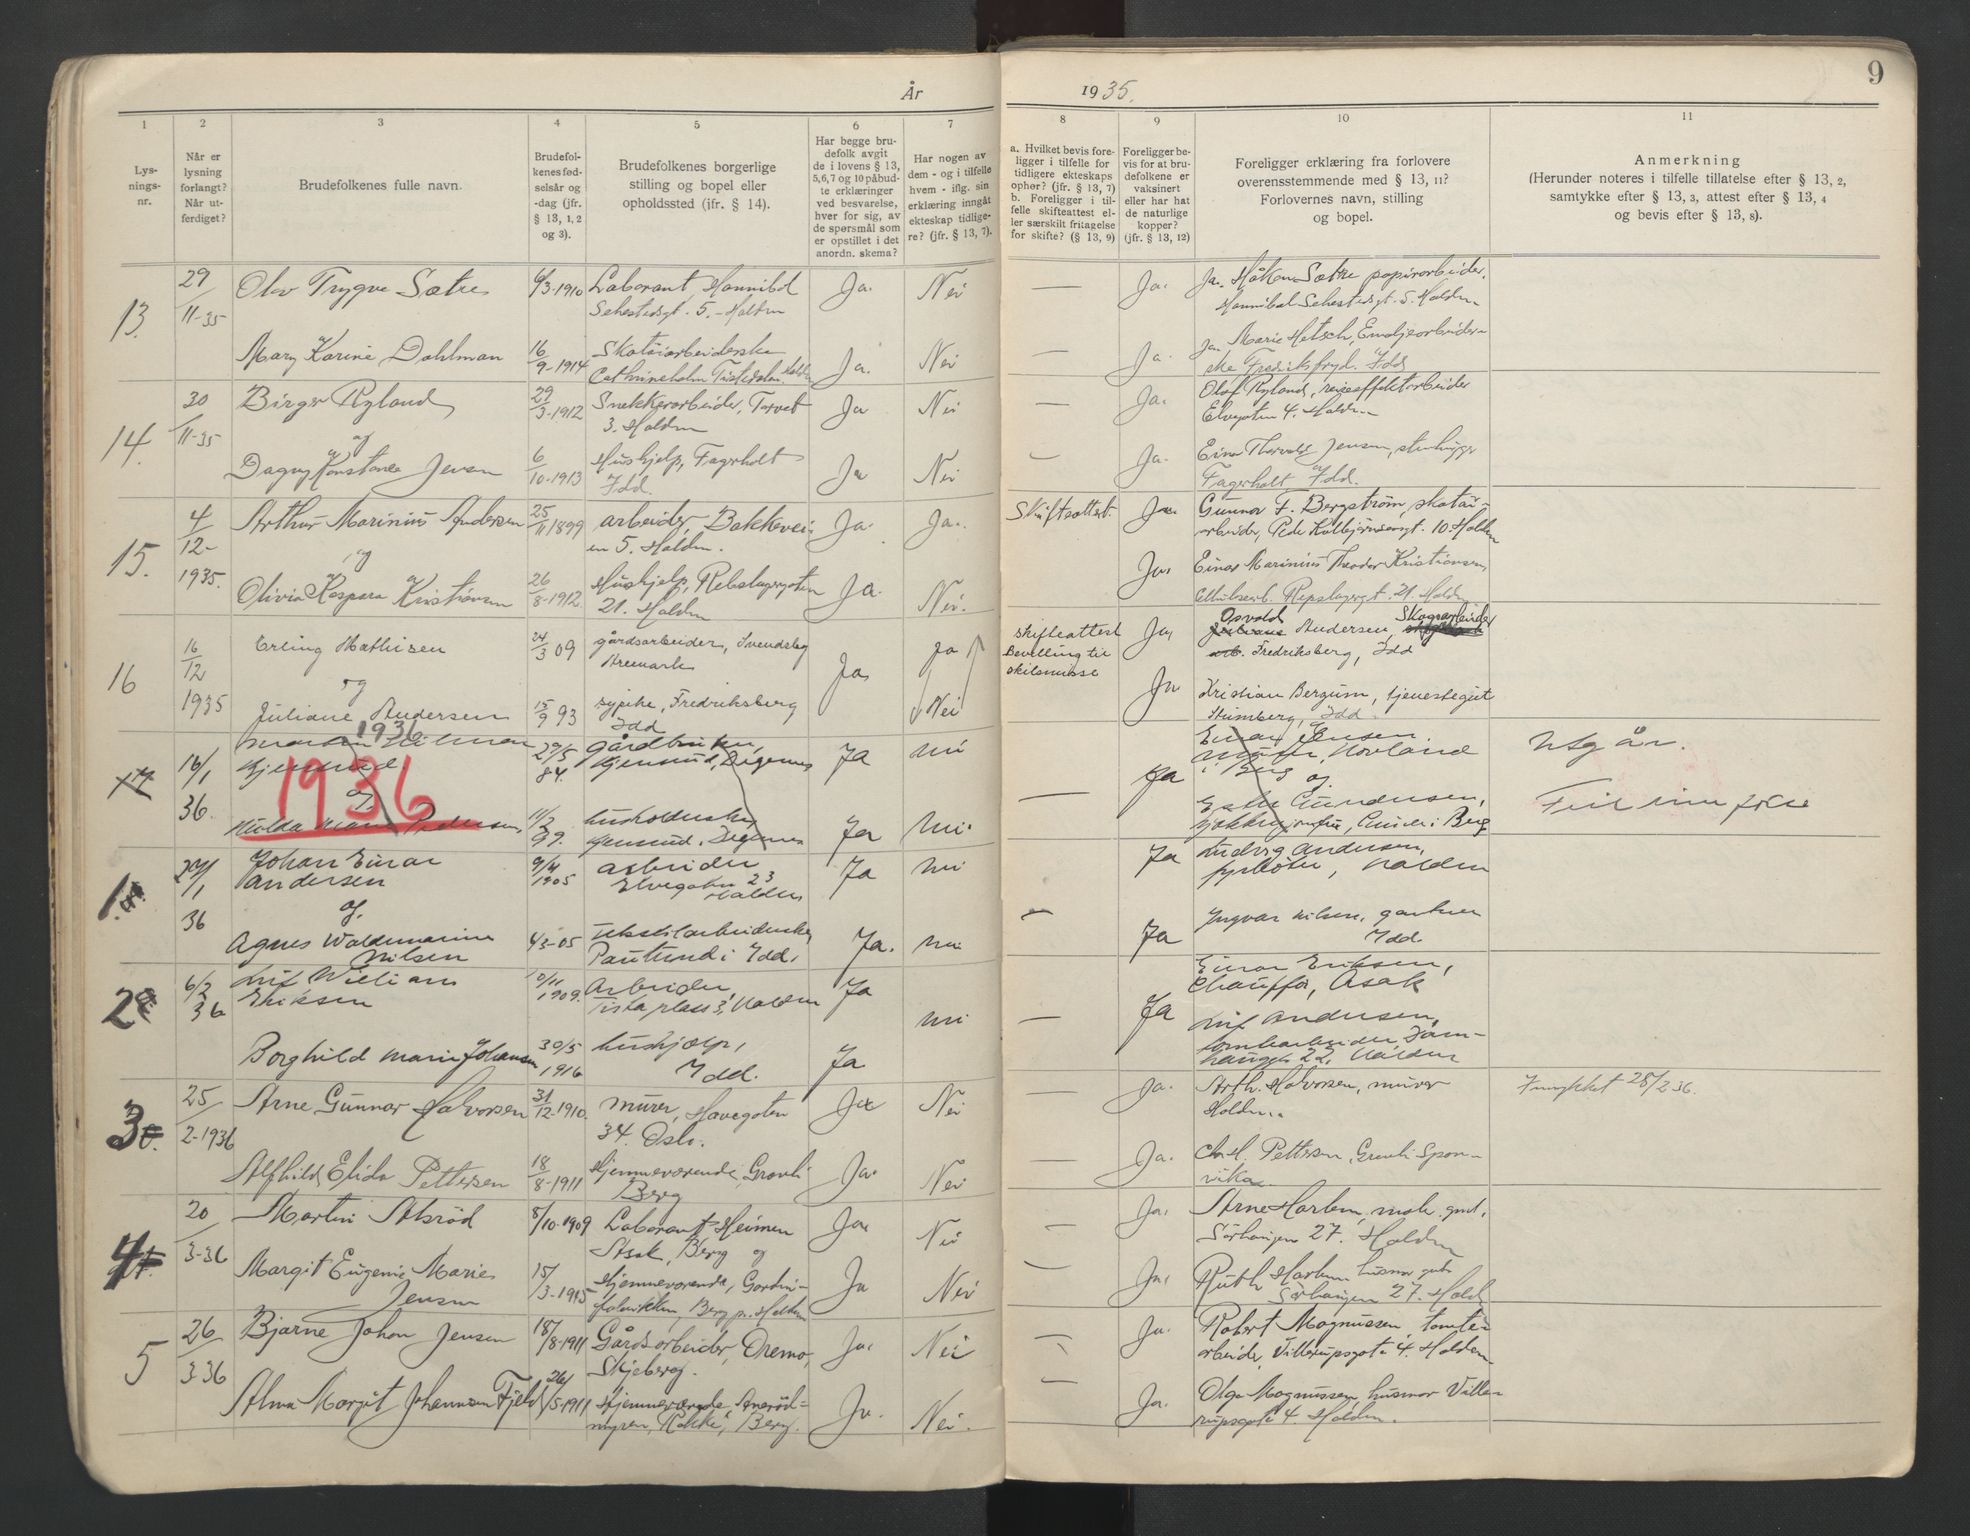 År
1935.
9
1
2
3
4
5
6
7
8
9
10
11
Lys-
nings-
nr.
Når er
lysning
forlangt?
Når ut-
ferdiget?
Brudefolkenes fulle navn.
Brudefol-
kenes fød-
selsår og
-dag (jfr.
§ 13, 1, 2
og 3).
Brudefolkenes borgerlige
stilling og bopel eller
opholdssted (jfr. § 14).
Har begge bru-
defolk avgit
de i lovens § 13,
5,6,7 og 10 påbud-
te erklæringer
ved besvarelse,
hver for sig, av
de spørsmål som
er opstillet i det
anordn. skema?
Har nogen av
dem - og i tilfelle
hvem - iflg. sin
erklæring inngått
ekteskap tidlige-
re? (jfr. § 13, 7).
a. Hvilket bevis fore-
ligger i tilfelle for
tidligere ekteskaps
ophør? (jfr. § 13, 7)
b. Foreligger i til-
felle skifteattest el-
ler særskilt fritagelse
for skifte? (§ 13, 9)
Foreligger be-
vis for at bru-
defolkene er
vaksinert
eller har hat
de naturlige
kopper?
(jfr. § 13, 12)
Foreligger erklæring fra forlovere
overensstemmende med § 13, 11?
Forlovernes navn, stilling
og bopel.
Anmerkning
(Herunder noteres i tilfelle tillatelse efter § 13, 2,
samtykke efter § 13, 3, attest efter § 13, 4
og bevis efter § 13, 8).
13.
29/11-35
Olav Trygve Sætre
6/3-1910
Laborant, Hannibal
Sehestedsgt. 5. - Halden
Ja.
Nei
—
Ja.
Ja. Håkon Sætre papirarbeider,
Hannibal Sehestedsgt. 5. Halden
Mary Karine Dahlman
16/9-1914
Skotøiarbeiderske
Cathrineholm Tistedalen Halden
Ja.
Nei
—
Ja.
Ja Marie Hetsch, Emaljearbeider-
ske Fredriksfryd. Idd
14.
30/11-35
Birger Ryland
29/3-1912
Snekkerarbeider, Torvet
3. Halden
Ja
Nei
—
Ja.
Olaf Ryland, reiseeffektarbeider
Elvegaten 4. Halden
og
Dagny Konstance Jensen
6/10-1913
Hushjelp, Fagerholt
Idd.
Ja
Nei
—
Ja.
Einar Thorvald Jensen, stenhugger
Fagerholt, Idd.
15.
4/12-1935.
Arthur Marinius Andersen
25/11 1899
arbeider, Bakkevei-
en 5. Halden.
Ja.
Ja.
Skifteattest.
Ja.
Gunnar F. Bergstrøm, skotøi-
arbeider, Peder Kolbjørnsensgt. 10. Halden
og
Olivia Kaspara Kristiansen
26/8-1912.
Hushjelp, Rebslagergaten
21. Halden
Ja.
Nei.
Ja,
Einar Marinius Theodor Kristiansen,
Cellulosearb. Repslagergt. 21. Halden
16
16/12 1935
Erling Mathisen
24/3 09
gårdsarbeider, Svendsby
Aremark
Ja
Ja
skifteattest
Bevilling til
skilsmisse
Ja,
Osvald Andersen, Skogsarbeider
Fredriksberg, Idd
og
Juliane Andersen
15/9 93
sypike, Fredriksberg
Idd
Nei
Ja
Kristian Bergum, tjenestegut
Idd.
1936
1936
16/1 36.
og
29/5 84.
gårdbruker,
Ja
nei
—
Ja
Einar Jensen
i Berg og
Utgår.
Hulda Marie Pedersen
husholderske,
Ja
nei.
Gundersen,
i Berg
1.
29/1 36
Johan Einar
Andersen
9/4 1905
arbeider
Elvegaten 23
Halden
Ja
nei
Ja
Ludvig Andersen,
fyrbøter, Halden
og.
Agnes Waldemarine
Nilsen
4/3-05
Tekstilarbeiderske,
i Idd.
Ja.
nei.
—
Ja
Ingvar Nilsen, gartner
Idd.
2
6/2 36
Leif William
Eriksen
10/11 1909.
Arbeider,
Tista plass 3, Halden
Ja
nei
—
Ja
Einar Eriksen,
Chauffør, Asak
Borghild Marie Johansen
30/5 1916
hushjælp,
Idd.
Ja
Leif Andersen,
22, Halden
3
25/2-1936
Arne Gunnar Halvorsen
31/12-1910
murer, Havegaten
34. Oslo.
Ja
Nei
—
Ja.
Arth. Halvorsen, murer
Halden.
28/2 36.
Alfhild Elida Pettersen
18/8-1911
Hjemmeværende, Grovli
Berg
Ja.
Nei
—
Ja.
Chr. M. Pettersen, Grovli Spon-
vika.
4
20/3-36
Martin Asbrød
8/10-1909
Laborant Heimen
Asak, Berg og
Ja
Nei
—
Ja,
Arne Harlem,
Sørhaugen 27. Halden
Margit Eugenie Marie
Jensen
15/3-1915
Hjemmeværende, Gardin-
fabrikken, Berg pr. Halden
Ja
Nei
—
Ja,
Ruth Harlem husmor
Sørhaugen 27. Hald.
5
26/3-36
Bjarne Johan Jensen
18/8-1911
Gårdsarbeider, Dremo,
Skjeberg.
Ja,
Nei
Ja.
Robert Magnussen tomte-
arbeider, Villerupsgate 4. Halden
Alma Margit Johannsen Fjeld
26/5-1911
Hjemmeværende,
myren, "Rokke", Berg.
Ja.
Nei.
Ja.
Olga Magnussen husmor Ville-
rupsgate 4. Halden.